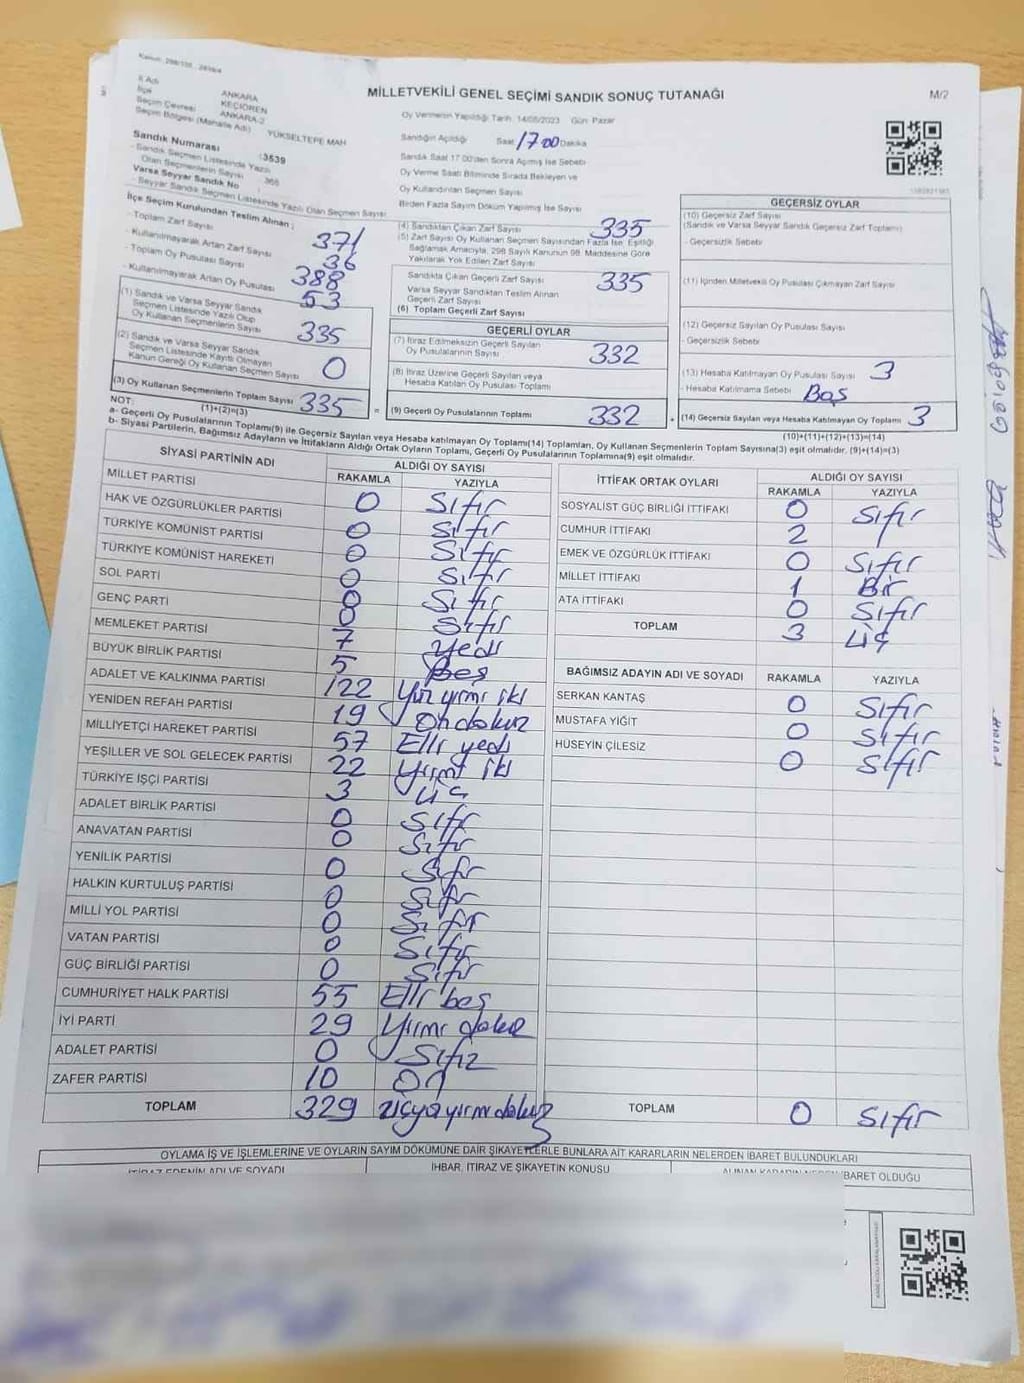 MİLLETVEKİLİ GENEL SEÇİMİ SANDIK SONUÇ TUTANAĞI
M/2
İl Adı ANKARA
İlçe KEÇİÖREN
Seçim Çevresi ANKARA-2
Seçim Bölgesi (Mahalle Adı) YÜKSELTEPE MAH
Sandık Numarası :3539
- Sandık Seçmen Listesinde Yazılı
Olan Seçmenlerin Sayısı
Varsa Seyyar Sandık No :
- Seyyar Sandık Seçmen Listesinde Yazılı Olan Seçmen Sayısı
Oy Vermenin Yapıldığı Tarih: 14/05/2023 Gün: Pazar
Sandığın Açıldığı Saat 17 00 Dakika
Sandık Saat 17.00'den Sonra Açılmış İse Sebebi
Oy Verme Saati Bitiminde Sırada Bekleyen ve
Oy Kullandırılan Seçmen Sayısı
Birden Fazla Sayım Döküm Yapılmış İse Sayısı
İlçe Seçim Kurulundan Teslim Alınan ;
- Toplam Zarf Sayısı 371
- Kullanılmayarak Artan Zarf Sayısı 36
- Toplam Oy Pusulası Sayısı 388
- Kullanılmayarak Artan Oy Pusulası 53
(1) Sandık ve Varsa Seyyar Sandık
Seçmen Listesinde Yazılı Olup
Oy Kullanan Seçmenlerin Sayısı 335
(2) Sandık ve Varsa Seyyar Sandık
Seçmen Listesinde Kayıtlı Olmayan
Kanun Gereği Oy Kullanan Seçmen Sayısı 0
(3) Oy Kullanan Seçmenlerin Toplam Sayısı 335
(1)+(2)=(3)
(4) Sandıktan Çıkan Zarf Sayısı 335
(5) Zarf Sayısı Oy Kullanan Seçmen Sayısından Fazla İse, Eşitliği
Sağlamak Amacıyla, 298 Sayılı Kanunun 98. Maddesine Göre
Yakılarak Yok Edilen Zarf Sayısı
Sandıkta Çıkan Geçerli Zarf Sayısı 335
Varsa Seyyar Sandıktan Teslim Alınan
Geçerli Zarf Sayısı
(6) Toplam Geçerli Zarf Sayısı
GEÇERLİ OYLAR
(7) İtiraz Edilmeksizin Geçerli Sayılan
Oy Pusulalarının Sayısı 332
(8) İtiraz Üzerine Geçerli Sayılan veya
Hesaba Katılan Oy Pusulası Toplamı
= (9) Geçerli Oy Pusulalarının Toplamı 332
GEÇERSİZ OYLAR
(10) Geçersiz Zarf Sayısı
(Sandık ve Varsa Seyyar Sandık Geçersiz Zarf Toplamı)
- Geçersizlik Sebebi
(11) İçinden Milletvekili Oy Pusulası Çıkmayan Zarf Sayısı
(12) Geçersiz Sayılan Oy Pusulası Sayısı
- Geçersizlik Sebebi
(13) Hesaba Katılmayan Oy Pusulası Sayısı 3
- Hesaba Katılmama Sebebi Boş
+ (14) Geçersiz Sayılan veya Hesaba Katılmayan Oy Toplamı 3
(10)+(11)+(12)+(13)=(14)
NOT:
a- Geçerli Oy Pusulalarının Toplamı(9) ile Geçersiz Sayılan veya Hesaba Katılmayan Oy Toplamı(14) Toplamları, Oy Kullanan Seçmenlerin Toplam Sayısına(3) eşit olmalıdır. (9)+(14)=(3)
b- Siyasi Partilerin, Bağımsız Adayların ve İttifakların Aldığı Ortak Oyların Toplamı, Geçerli Oy Pusulalarının Toplamına(9) eşit olmalıdır.
SİYASİ PARTİNİN ADI ALDIĞI OY SAYISI
RAKAMLA YAZIYLA
MİLLET PARTİSİ 0 Sıfır
HAK VE ÖZGÜRLÜKLER PARTİSİ 0 Sıfır
TÜRKİYE KOMÜNİST PARTİSİ 0 Sıfır
TÜRKİYE KOMÜNİST HAREKETİ 0 Sıfır
SOL PARTİ 0 Sıfır
GENÇ PARTİ 0 Sıfır
MEMLEKET PARTİSİ 7 Yedi
BÜYÜK BİRLİK PARTİSİ 5 Beş
ADALET VE KALKINMA PARTİSİ 122 Yüz yirmi iki
YENİDEN REFAH PARTİSİ 19 On dokuz
MİLLİYETÇİ HAREKET PARTİSİ 57 Elli yedi
YEŞİLLER VE SOL GELECEK PARTİSİ 22 Yirmi iki
TÜRKİYE İŞÇİ PARTİSİ 3 Üç
ADALET BİRLİK PARTİSİ 0 Sıfır
ANAVATAN PARTİSİ 0 Sıfır
YENİLİK PARTİSİ 0 Sıfır
HALKIN KURTULUŞ PARTİSİ 0 Sıfır
MİLLİ YOL PARTİSİ 0 Sıfır
VATAN PARTİSİ 0 Sıfır
GÜÇ BİRLİĞİ PARTİSİ 0 Sıfır
CUMHURİYET HALK PARTİSİ 55 Elli beş
İYİ PARTİ 29 Yirmi dokuz
ADALET PARTİSİ 0 Sıfır
ZAFER PARTİSİ 10 On
TOPLAM 329 üçyüzyirmidokuz
İTTİFAK ORTAK OYLARI ALDIĞI OY SAYISI
RAKAMLA YAZIYLA
SOSYALİST GÜÇ BİRLİĞİ İTTİFAKI 0 Sıfır
CUMHUR İTTİFAKI 2
EMEK VE ÖZGÜRLÜK İTTİFAKI 0 Sıfır
MİLLET İTTİFAKI 1 Bir
ATA İTTİFAKI 0 Sıfır
TOPLAM 3 üç
BAĞIMSIZ ADAYIN ADI VE SOYADI RAKAMLA YAZIYLA
SERKAN KANTAŞ 0 Sıfır
MUSTAFA YİĞİT 0 Sıfır
HÜSEYİN ÇİLESİZ 0 Sıfır
TOPLAM 0 Sıfır
OYLAMA İŞ VE İŞLEMLERİNE VE OYLARIN SAYIM DÖKÜMÜNE DAİR ŞİKAYETLERLE BUNLARA AİT KARARLARIN NELERDEN İBARET BULUNDUKLARI
İTİRAZ EDENİN ADI VE SOYADI İHBAR, İTİRAZ VE ŞİKAYETİN KONUSU ALINAN KARARIN NEDEN İBARET OLDUĞU